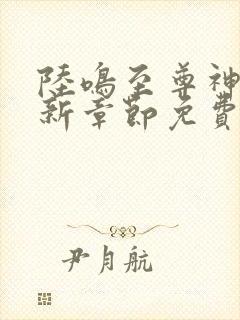 陸鳴至尊神
新章節免費
尹月航